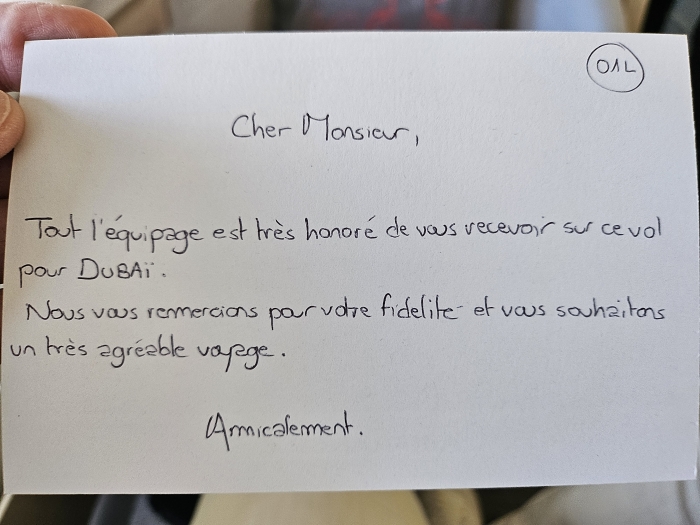 01L
Cher Monsieur,
Tout l'équipage est très honoré de vous recevoir sur ce vol
pour DUBAï.
Nous vous remercions pour votre fidelité et vous souhaitons
un très agréable voyage.
Amicalement.